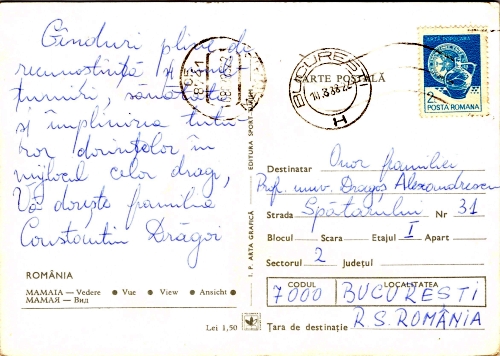 Gânduri pline de
recunoștință și mul
țumiri, sănătate
și împlinirea tutu
ror dorințelor în
mijlocul celor dragi,
Vă dorește familia
Constantin Drăgoi
ROMÂNIA
MAMAIA — Vedere ● Vue ● View ● Ansicht ●
МАМАЯ — Вид
Lei 1,50
I. P. ARTA GRAFICĂ
EDITURA SPORT
CARTE POSTALĂ
BUCUREȘTI
H
ARTA POPULARA
2L
POSTA ROMANA
Destinatar Onor familiei
Prof. univ. Dragoș Alexandrescu
Strada Spătarului Nr 31
Blocul Scara Etajul I Apart
Sectorul 2 Județul
CODUL LOCALITATEA
7000 BUCUREȘTI
Țara de destinație R.S. ROMÂNIA